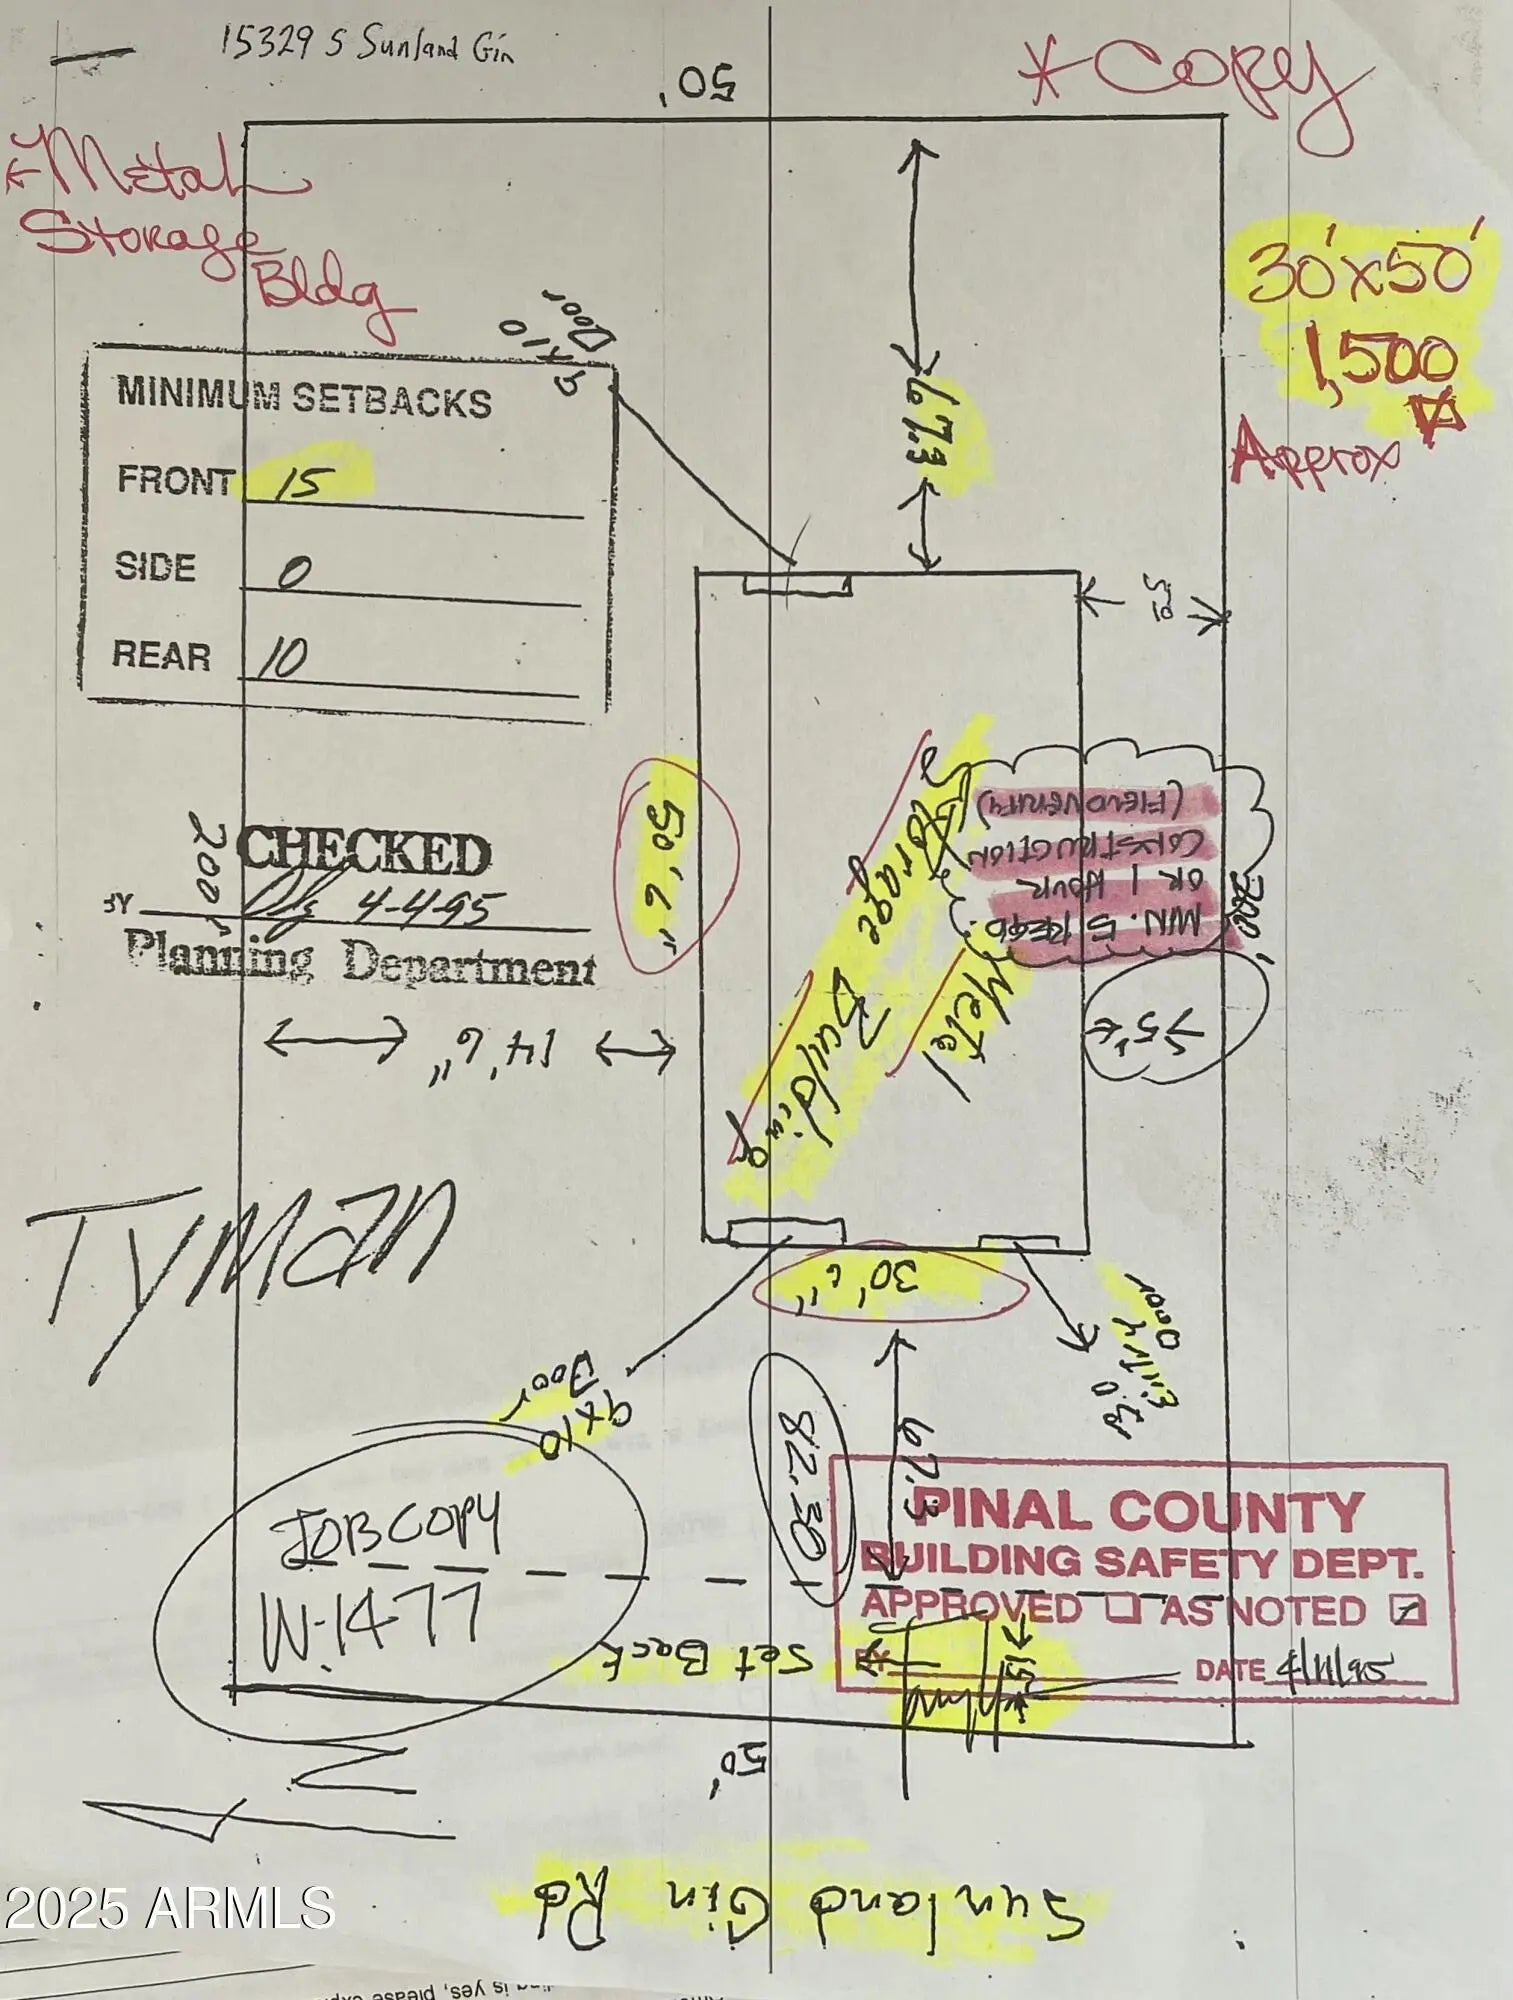 15329 S Sunland Gin
50'
* Copy
Metal
Storage
Bldg
30'x50'
1,500
Approx
9x10
Door
MINIMUM SETBACKS
FRONT 15
SIDE 0
REAR 10
67.3
5.5
200'
CHECKED
BY 4-4-95
Planning Department
50' 6"
Metal
Storage Building
MIN. 5 REQD.
OR 1 HOUR
CONSTRUCTION
(FIELD VERIFY)
200'
14' 6"
Tyman
30' 6"
9x10
Door
3.0
Entry
Door
82.30
67.3
JOB COPY
W-1477
PINAL COUNTY
BUILDING SAFETY DEPT.
APPROVED AS NOTED
BY DATE 4/11/95
Set Back
15'
50'
N
Sunland Gin Rd
2025 ARMLS
is yes, please